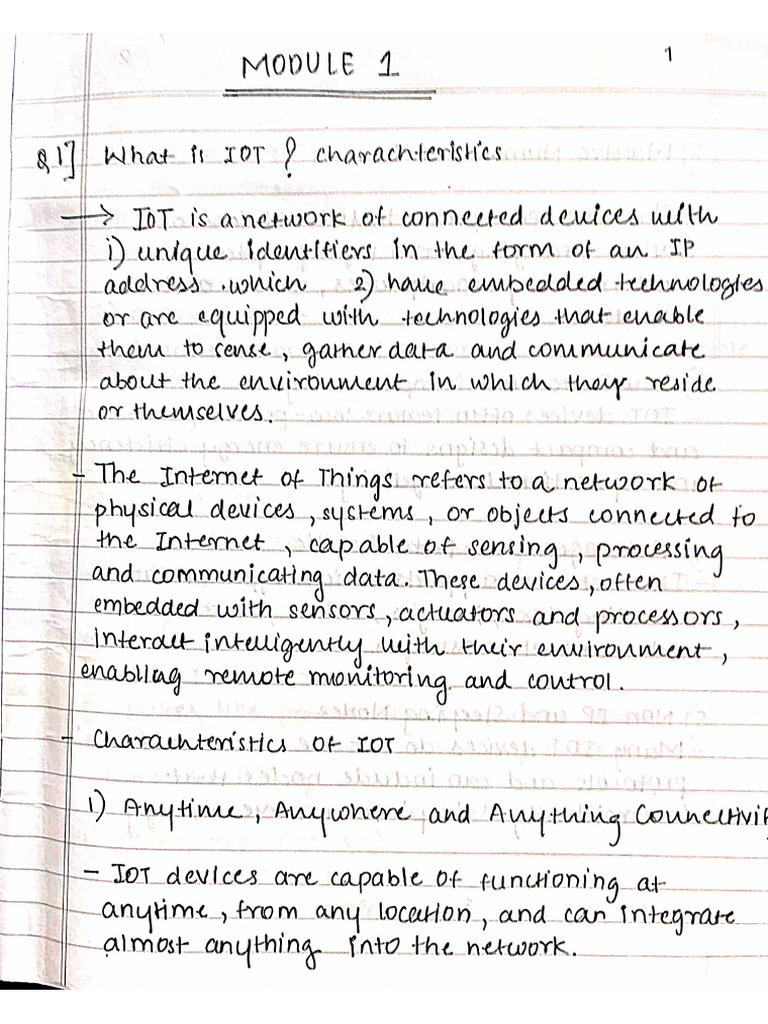 MODULE 1
1
Q1] What is IOT ? charachteristics
→ IOT is a network of connected devices with
i) unique identifiers in the form of an IP
address . which 2) have embedded technologies
or are equipped with technologies that enable
them to sense, gather data and communicate
about the environment in which they reside
or themselves.
- The Internet of Things refers to a network of
physical devices, systems, or objects connected to
the Internet, capable of sensing, processing
and communicating data. These devices, often
embedded with sensors, actuators and processors,
interact intelligently with their environment,
enabling remote monitoring and control.
- Charachteristics of IOT
1) Anytime, Anywhere and Anything Connectivit
- IOT devices are capable of functioning at
anytime, from any location, and can integrate
almost anything into the network.